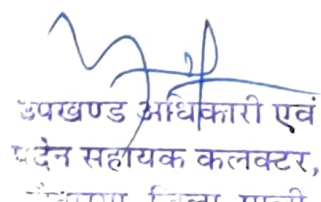 उपखण्ड अधिकारी एवं
पदेन सहायक कलक्टर,
जिला पाली